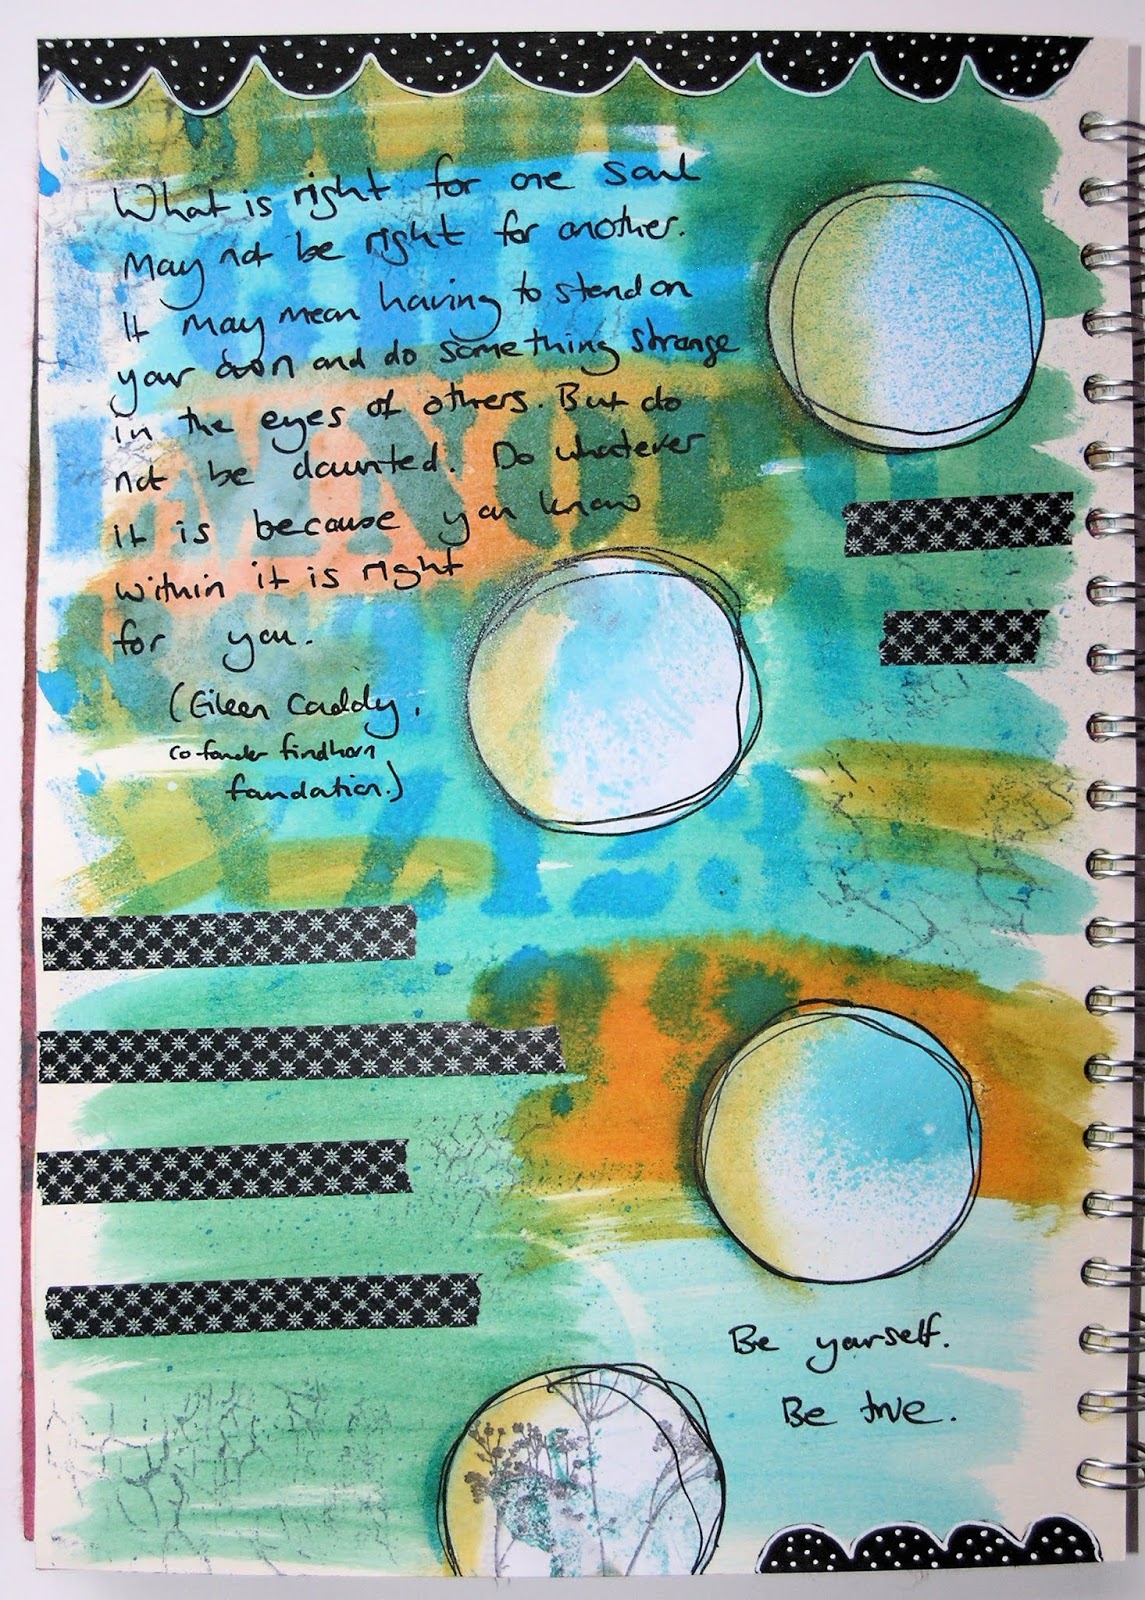 What is right for one soul
May not be right for another.
It may mean having to stand on
your own and do something strange
in the eyes of others. But do
not be daunted. Do whatever
it is because you know
within it is right
for you.
(Eileen Caddy,
co-founder findhorn
foundation.)
MNOP
Be yourself.
Be true.